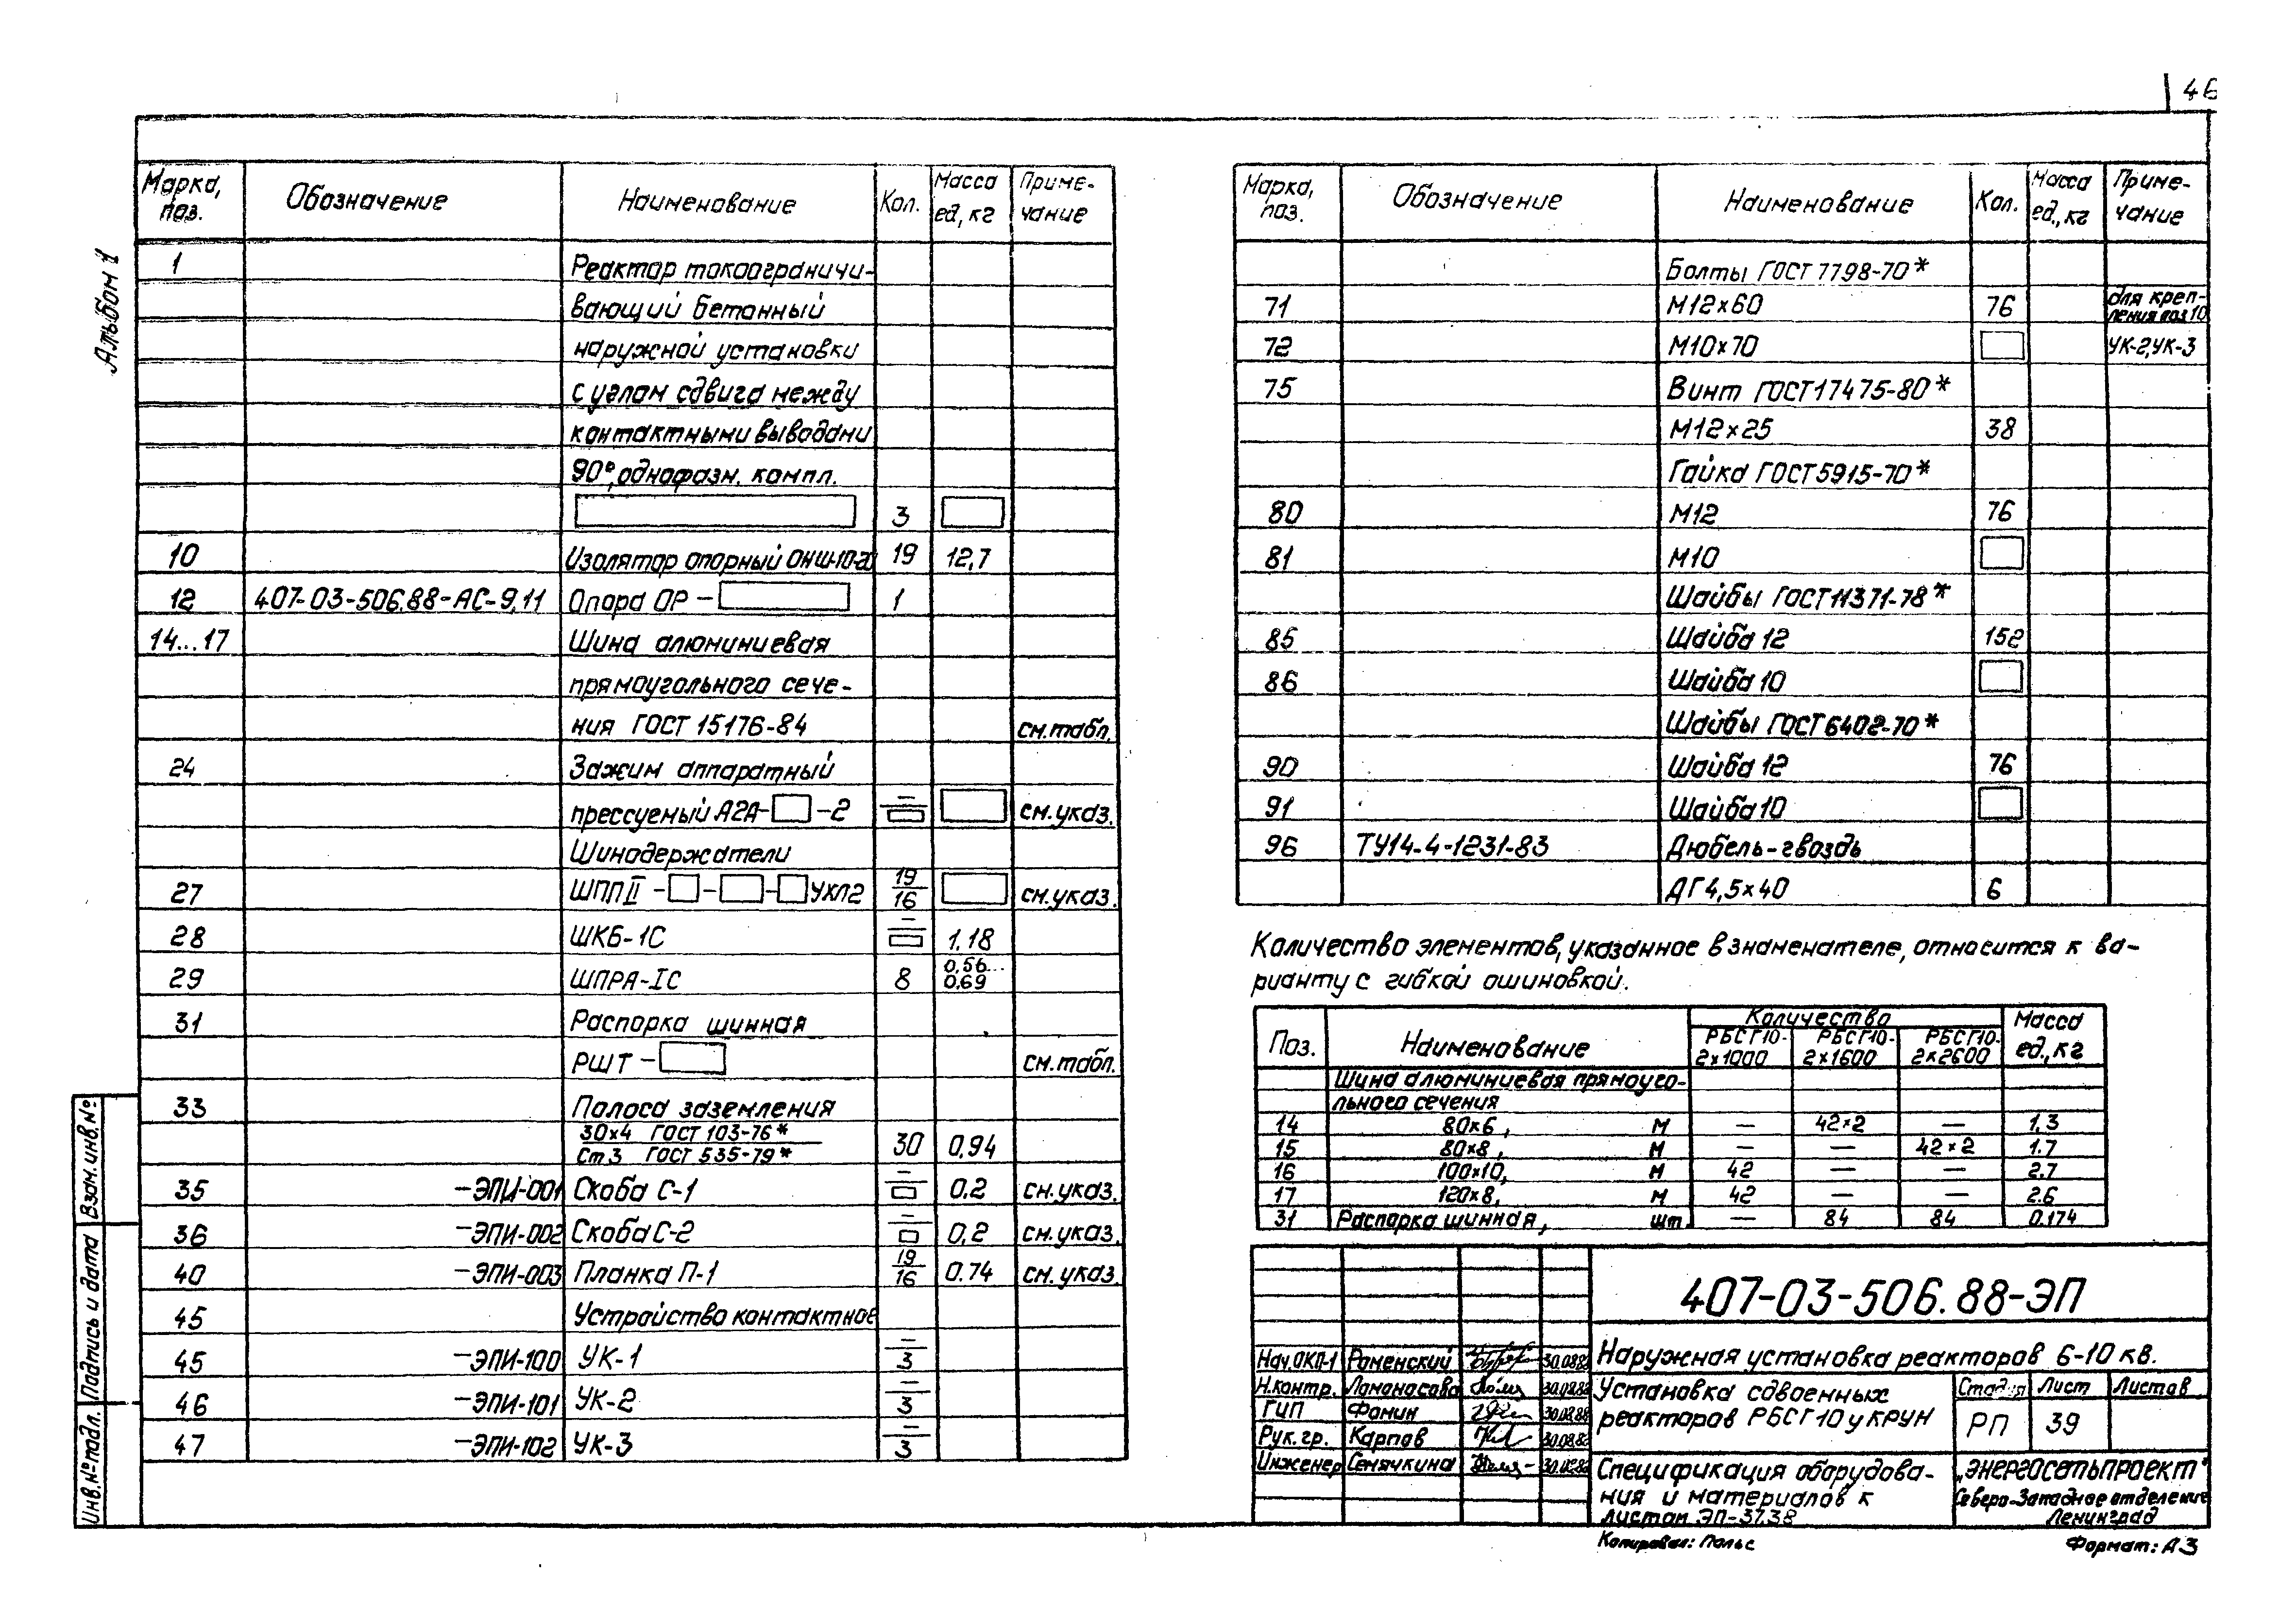 46
Альбом 1
Марка, поз. Обозначение Наименование Кол. Масса ед., кг Приме-чание
1 Реактор токоограничи-
вающий бетонный
наружной установки
с углом сдвига между
контактными выводами
90°, однофазн. компл.
3
10 Изолятор опорный ОНШ-10-20 19 12,7
12 407-03-506.88-АС-9,11 Опора ОР – 1
14...17 Шина алюминиевая
прямоугольного сече-
ния ГОСТ 15176-84 см. табл.
24 Зажим аппаратный
прессуемый А2А- -2 – см. указ.
Шинодержатели
27 ШППII – – – УХЛ2 19/16 см. указ.
28 ШКБ-1С – 1,18
29 ШПРА-1С 8 0,56...0,69
31 Распорка шинная
РШТ – см. табл.
33 Полоса заземления
30х4 ГОСТ 103-76*
Ст3 ГОСТ 535-79* 30 0,94
35 –ЭПИ-001 Скоба С-1 – 0.2 см. указ.
36 –ЭПИ-002 Скоба С-2 – 0,2 см. указ.
40 –ЭПИ-003 Планка П-1 19/16 0.74 см. указ.
45 Устройство контактное
45 –ЭПИ-100 УК-1 –/3
46 –ЭПИ-101 УК-2 –/3
47 –ЭПИ-102 УК-3 –/3
Марка, поз. Обозначение Наименование Кол. Масса ед., кг Приме-чание
Болты ГОСТ 7798-70*
71 М12х60 76 для креп-ления поз 10
72 М10х70 УК-2, УК-3
75 Винт ГОСТ 17475-80*
М12х25 38
Гайка ГОСТ 5915-70*
80 М12 76
81 М10
Шайбы ГОСТ 11371-78*
85 Шайба 12 152
86 Шайба 10
Шайбы ГОСТ 6402-70*
90 Шайба 12 76
91 Шайба 10
96 ТУ14-4-1231-83 Дюбель-гвоздь
ДГ 4,5х40 6
Количество элементов, указанное в знаменателе, относится к ва-
рианту с гибкой ошиновкой.
Поз. Наименование Количество Масса ед., кг
РБСГ10-2х1000 РБСГ10-2х1600 РБСГ10-2х2600
Шина алюминиевая прямоуго-
льного сечения
14 80х6, м — 42×2 — 1,3
15 80х8, м — — 42×2 1.7
16 100х10, м 42 — — 2.7
17 120х8, м 42 — — 2.6
31 Распорка шинная, шт — 84 84 0.174
407-03-506.88-ЭП
Нач. ОКП-1 Роменский 30.08.88 Наружная установка реакторов 6-10 кв.
Н.контр. Ломоносова 30.08.88
ГИП Фомин 30.08.88
Рук. гр. Карпов 30.08.88
Инженер Сенячкина 30.08.88
Установка сдвоенных
реакторов РБСГ10 у КРУН
Стадия Лист Листов
РП 39
Спецификация оборудова-
ния и материалов к
листам ЭП-37,38
„ЭНЕРГОСЕТЬПРОЕКТ"
Северо-Западное отделение
Ленинград
Копировал: Польс
Формат: А3
Взам. инв. №
Подпись и дата
Инв. № подл.